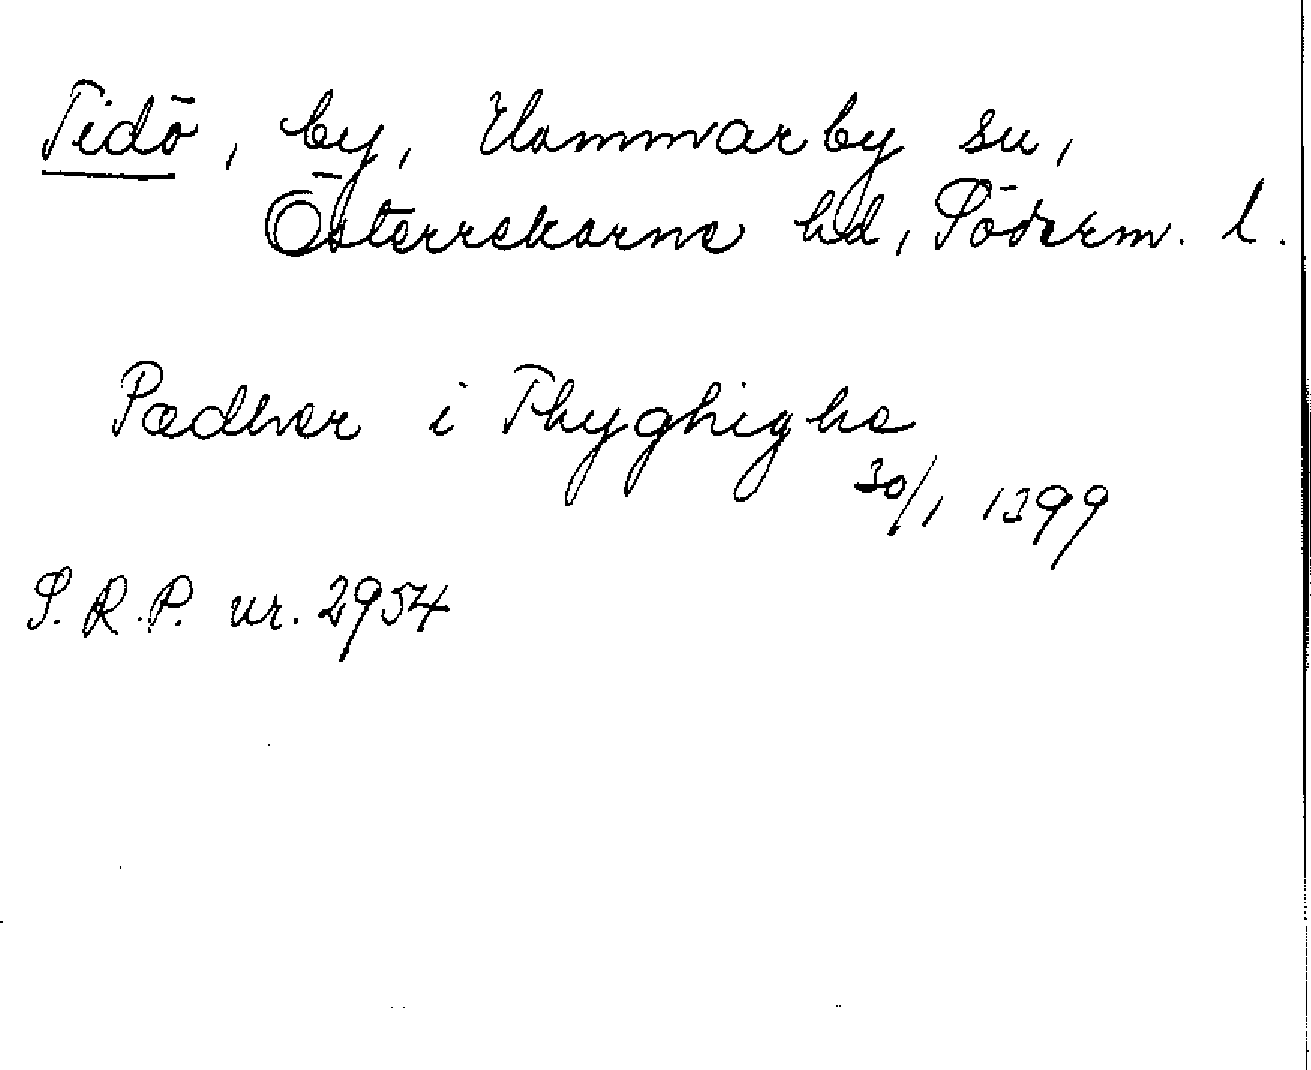 Tidö, by, Hammarby sn,
Österrekarne hd, Söderm. l.
Pædhar i Thyghigha
30/1 1399
S.R.P. nr. 2954